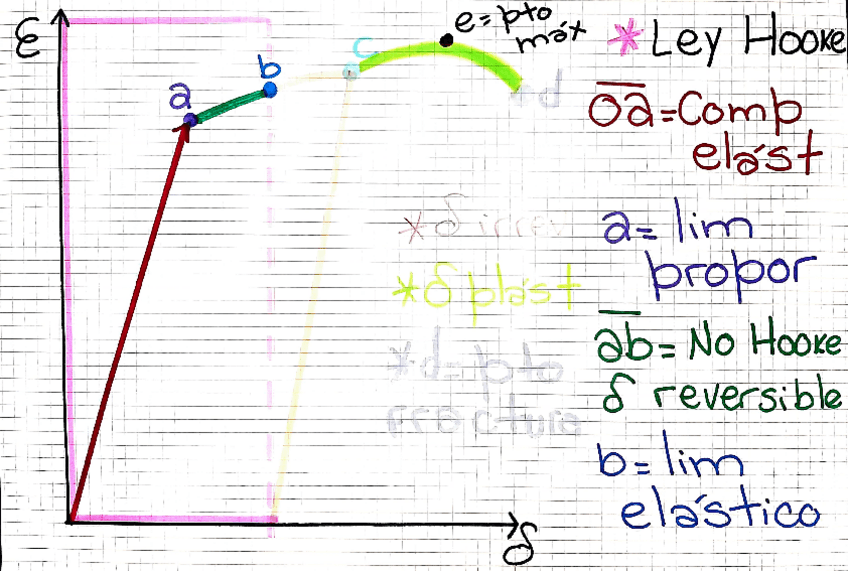 ε
a
b
c
e=pto
máx
*d
δ
* δ irrev
* δ plást
* d= pto
fractura
* Ley Hooke
oa=Comp
elást
a= lim
propor
ab= No Hooke
δ reversible
b= lim
elástico